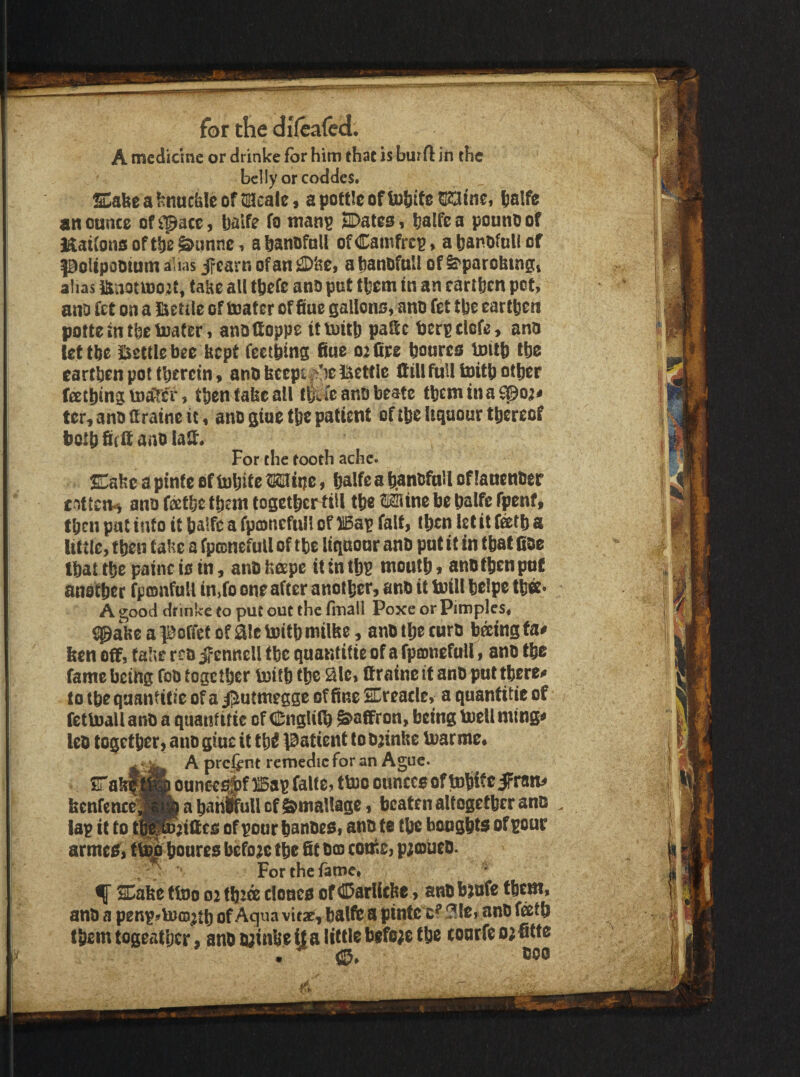 for the diſeaſed.
A medicine or drinke for him that is burſt in the
belly or coddes.
Take a knuckle of Veale, a pottle of white Wine, halfe
an ounce of Mace, halfe ſo many Dates, halfe a pound of
Raiſons of the Sunne, a handfull of Camfrey, a handfull of
Polipodium alias Fearn of an Oke, a handfull of Sparohtng,
alias Knotwort, take all theſe and put them in an earthen pot,
and ſet on a Kettle of water of fiue gallons, and ſet the earthen
potte in the water, and ſtoppe it with paſte very cloſe, and
let the Kettle bee kept ſeething fiue or ſixe houres with the
earthen pot therein, and keepe the Kettle ſtill full with other
ſeething water, then take all theſe and beate them in a Mor-
ter, and ſtraine it, and giue the patient of the liquour thereof
both firſt and laſt.
For the tooth ache.
Take a pinte of white Wine, halfe a handfull of lauender
cotten, and ſeethe them together till the Wine be halfe ſpent,
then put into it halfe a ſpoonefull of Bay ſalt, then let it ſeeth a
little, then take a ſpoonefull of the liquour and put it in that ſide
that the paine is in, and keepe it in thy mouth, and then put
another ſpoonfull in, ſo one after another, and it will helpe thee.
A good drinke to put out the ſmall Poxe or Pimples.
Make a Poſſet of Ale with milke, and the curd beeing ta-
ken off, take red Fennell the quantitie of a ſpoonefull, and the
ſame being ſod together with the Ale, ſtraine it and put there-
to the quantitie of a Nutmegge of fine Treacle, a quantitie of
ſetwall and a quantitie of Engliſh Saffron, being well ming-
led together, and giue it thé Patient to drinke warme.
A preſent remedie for an Ague.
Take ounces of Bay ſalte, two ounces of white Fran-
kenſence, a handfull of Smallage, beaten altogether and
lap it to the wriſtes of your handes, and to the boughts of your
armes, two houres before the fit doo come, prooued.
For the ſame.
¶ Take two or three cloues of Garlicke, and bruſe them,
and a peny-woorth of Aqua vitæ, halfe a pinte of Ale, and ſeeth
them togeather, and drinke it a little before the courſe or fitte
G. doo